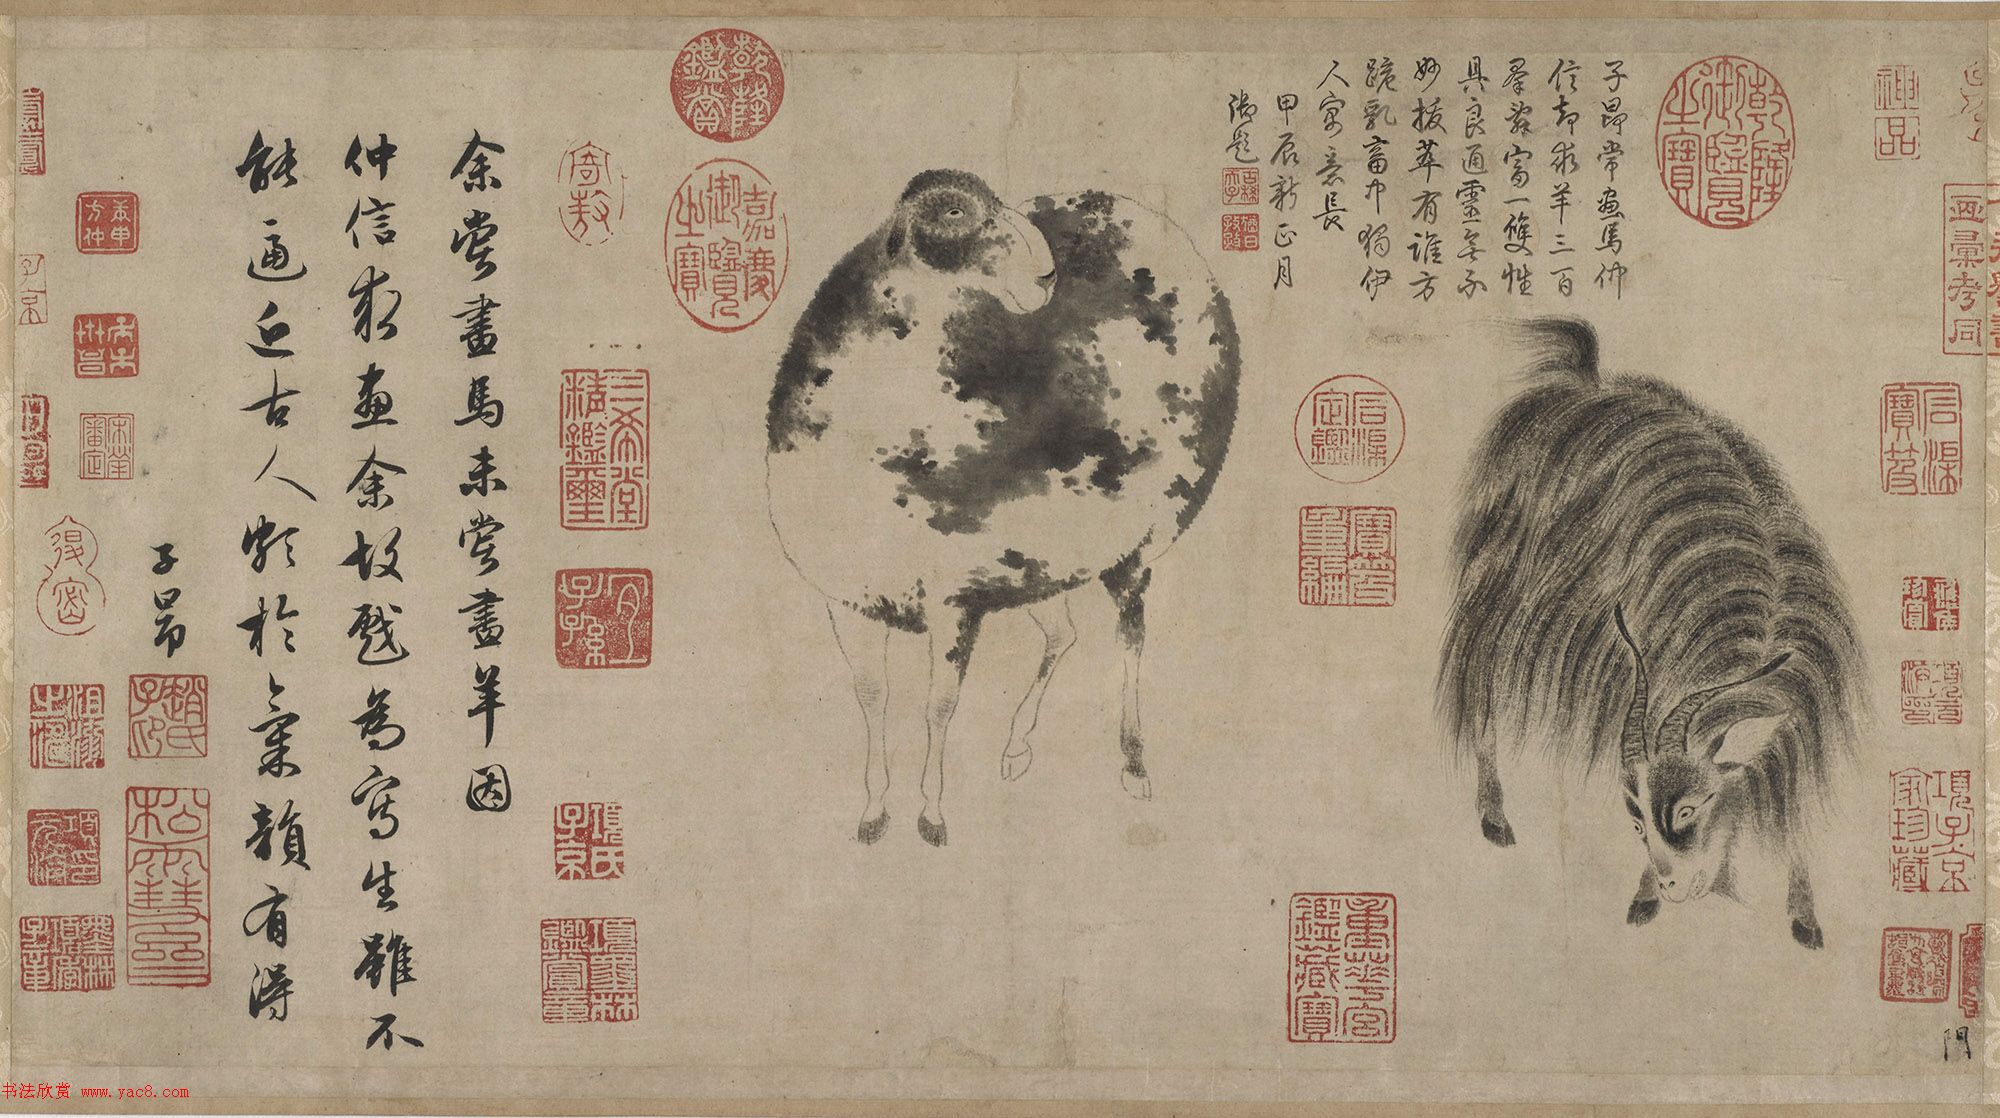 子昂常畫馬仲
信却求羊三百
羣辭富一雙性
具良通靈無不
妙拔萃有誰方
跪乳畜中獨伊
人寓意長
甲辰新正月
御題
乾隆御覽之寶
乾隆鑑賞
嘉慶御覽之寶
神品
石渠寶笈
石渠定鑑
寶笈重編
三希堂精鑑璽
宜子孫
項氏子京
重華宮鑑藏寶
項子京家珍藏
余嘗畫馬未嘗畫羊因
仲信求畫余故戲為寫生雖不
能逼近古人頗於氣韻有得
子昂
趙氏子昂
松雪齋
書法欣赏 www.yac8.com